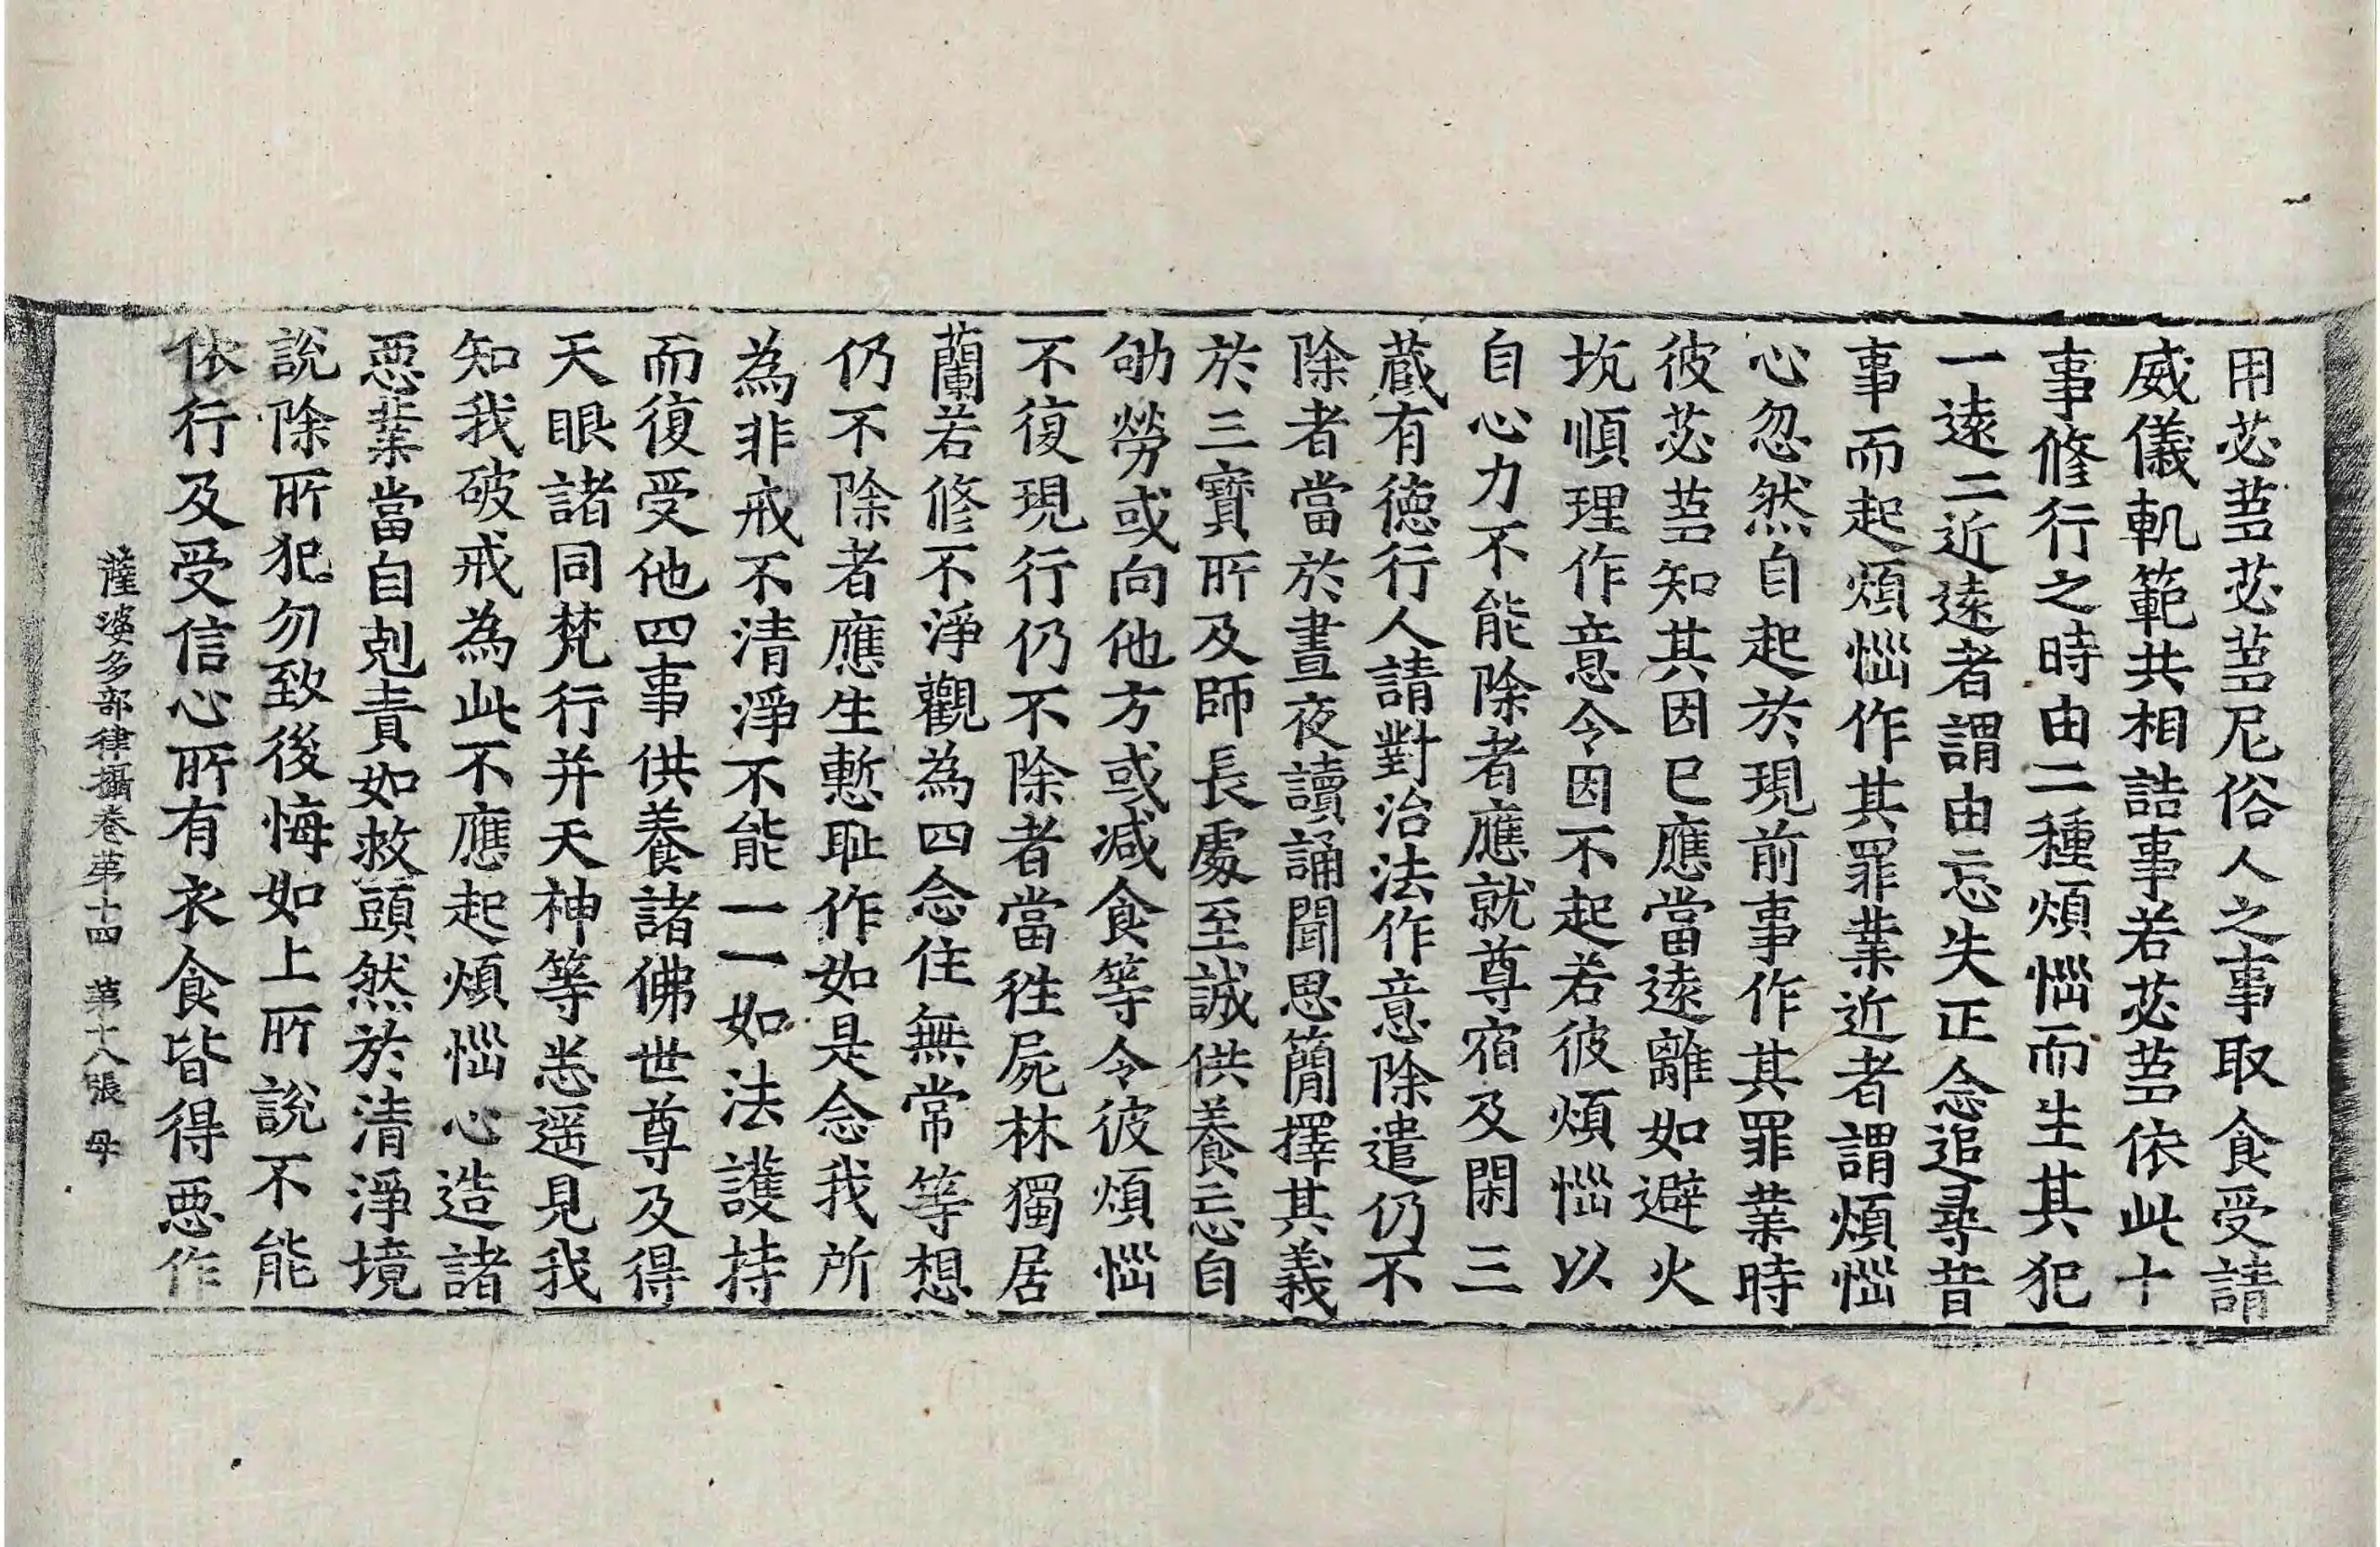 用苾蒭苾蒭尼俗人之事取食受請
威儀軌範共相詰事若苾蒭依此十
事修行之時由二種煩惱而生其犯
一遠二近遠者謂由忘失正念追尋昔
事而起煩惱作其罪業近者謂煩惱
心忽然自起於現前事作其罪業時
彼苾蒭知其因已應當遠離如避火
坑順理作意令因不起若彼煩惱以
自心力不能除者應就尊宿及閑三
藏有德行人請對治法作意除遣仍不
除者當於晝夜讀誦聞思簡擇其義
於三寶所及師長處至誠供養忘自
劬勞或向他方或減食等令彼煩惱
不復現行仍不除者當往屍林獨居
蘭若修不淨觀為四念住無常等想
仍不除者應生慙恥作如是念我所
為非戒不清淨不能一一如法護持
而復受他四事供養諸佛世尊及得
天眼諸同梵行并天神等悉遥見我
知我破戒為此不應起煩惱心造諸
惡業當自剋責如救頭然於清淨境
說除所犯勿致後悔如上所說不能
依行及受信心所有衣食皆得惡作
薩婆多部律攝卷第十四　第十八張　母